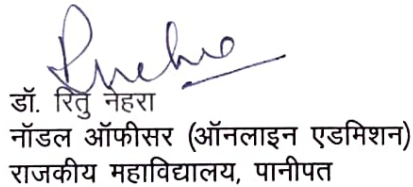 डॉ. रितु नेहरा
नॉडल ऑफीसर (ऑनलाइन एडमिशन)
राजकीय महाविद्यालय, पानीपत